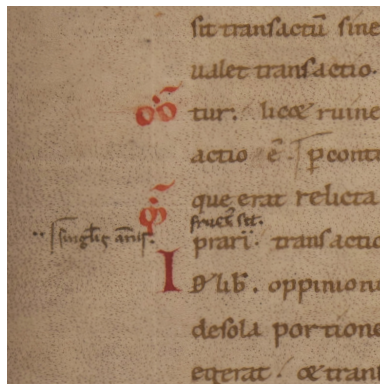 sit transactū sine
ualet transactio.
tur. licet ruine
actio ē. ꝑcont
que erat relicta
sit.
singlis annis.
prari. transactio
I D lib. oppinion
desola portione
egerat. & tran